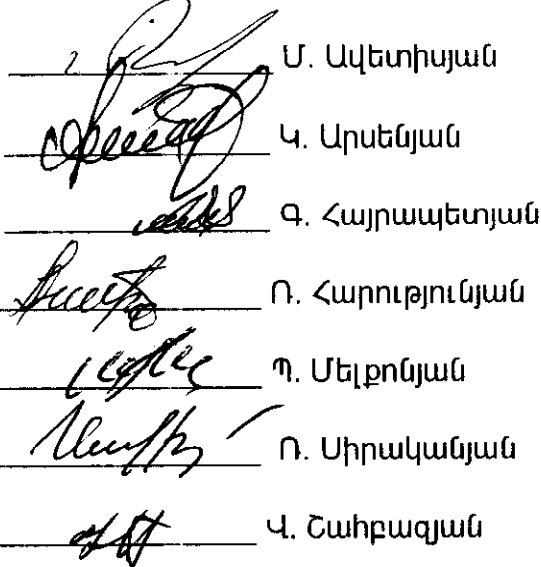 Մ. Ավետիսյան
Կ. Արսենյան
Գ. Հայրապետյան
Ռ. Հարությունյան
Պ. Մելքոնյան
Ռ. Սիրականյան
Վ. Շահբազյան